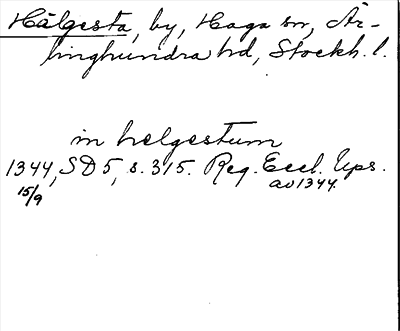 Hälgesta, by, Haga sn, Är-
linghundra hd, Stockh. l.
in helgestum
1344, SD 5, s. 315. Reg. Eccl. Ups.
15/9
av 1344.